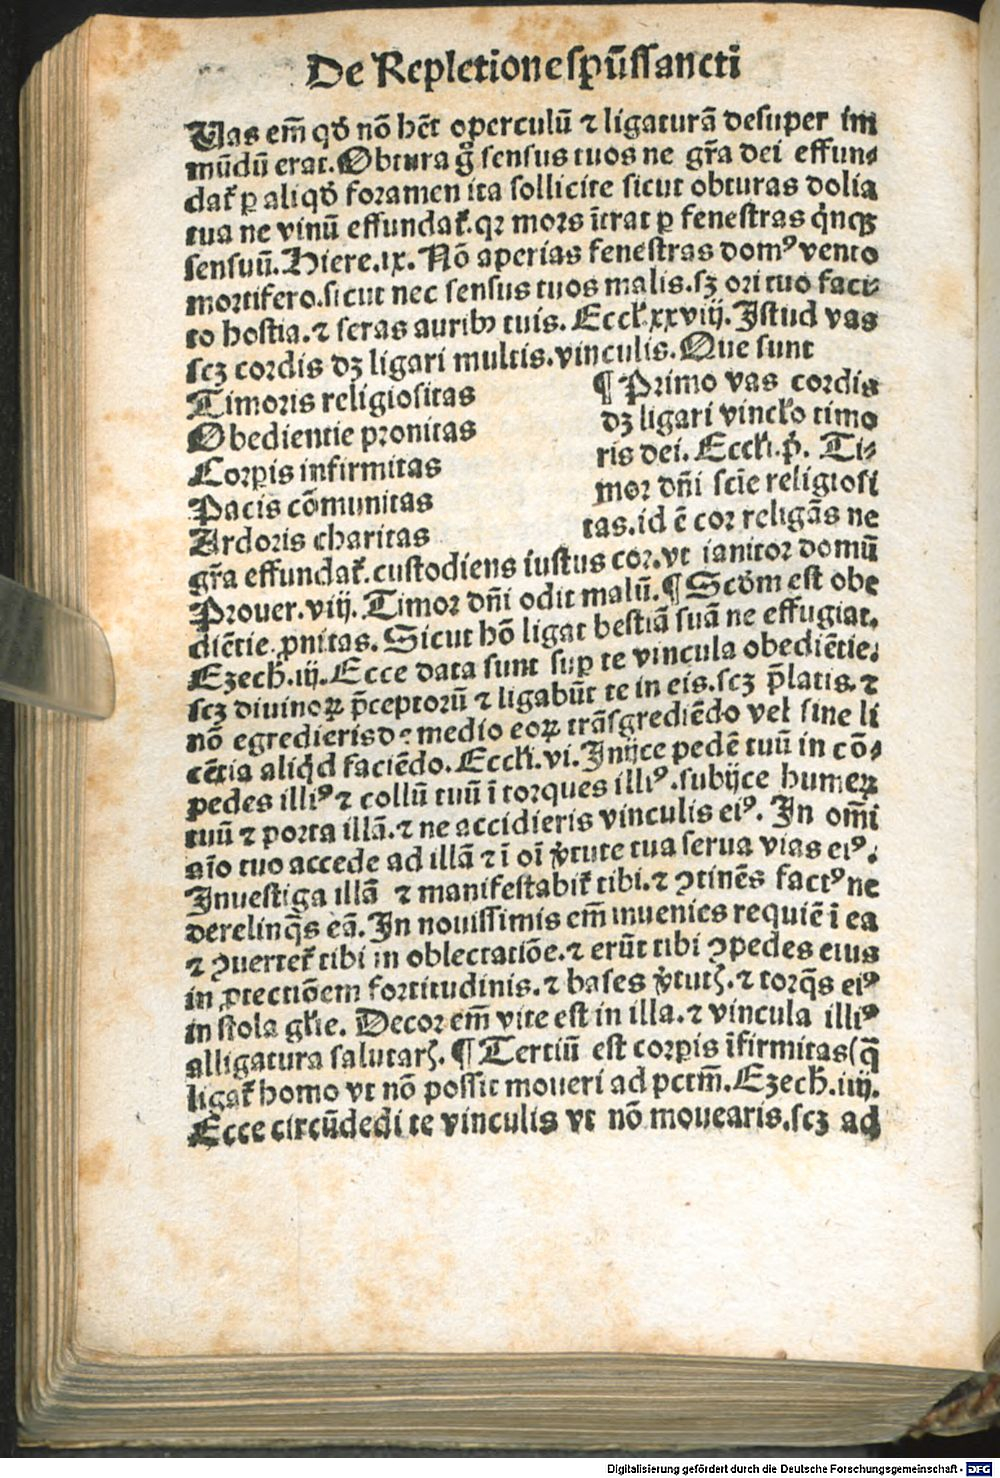 De Repletione spūssancti
Uas em̄ qđ nō hēt operculū ⁊ ligaturā desuper im
mūdū erat. Obtura g̊ sensus tuos ne gr̄a dei effun⸗
dat̃ ꝑ aliqđ foramen ita sollicite sicut obturas dolia
tua ne vinū effundat̃. qꝛ mors īrat ꝑ fenestras qͥnqꝫ
sensuū. Hiere. ix. Nō aperias fenestras domꝰ vento
mortifero. sicut nec sensus tuos malis. sꝫ ori tuo faci⸗
to hostia. ⁊ seras auribꝰ tuis. Eccł. xxviij. Istud vas
scꝫ cordis dꝫ ligari multis. vinculis. Que sunt
Timoris religiositas
Obedientie pronitas
Corꝑis infirmitas
Pacis cōmunitas
Ardoris charitas
¶ Primo vas cordis
dꝫ ligari vincło timo
ris dei. Eccłi. pͥ. Ti⸗
mor dn̄i scīe religiosi
tas. id ē cor religās ne
gr̄a effundat̃. custodiens iustus cor. vt ianitor domū
Prouer. viij. Timor dn̄i odit malū. ¶ Scđm est obe
diētie ꝓnitas. Sicut hō ligat bestiā suā ne effugiat.
Ezech. iij. Ecce data sunt suꝑ te vincula obediētie.
scꝫ diuinoꝝ p̄ceptorū ⁊ ligabūt te in eis. scꝫ p̄latis. ⁊
nō egredieris de medio eoꝝ trāsgrediēdo vel sine li
cētia aliqͥd faciēdo. Eccłi. vi. Inijce pedē tuū in cō⸗
pedes illiꝰ ⁊ collū tuū ī torques illiꝰ. subijce humeꝝ
tuū ⁊ porta illā. ⁊ ne accidieris vinculis eiꝰ. In om̄i
aīo tuo accede ad illā ⁊ ī oī v̓tute tua serua vias eiꝰ.
Inuestiga illā ⁊ manifestabit̃ tibi. ⁊ ꝯtinēs factꝰ ne
derelinq̄s eā. In nouissimis em̄ inuenies requiē ī ea
⁊ ꝯuertet̃ tibi in oblectatiōe. ⁊ erūt tibi ꝯpedes eius
in ꝓtectiōem fortitudinis. ⁊ bases v̓tutꝭ. ⁊ torq̄s eiꝰ
in stola głie. Decor em̄ vite est in illa. ⁊ vincula illiꝰ
alligatura salutarꝭ. ¶ Tertiū est corꝑis īfirmitas (q̄
ligat̃ homo vt nō possit moueri ad pctm̄. Ezech. iiij.
Ecce circūdedi te vinculis vt nō mouearis. scꝫ ad
Digitalisierung gefördert durch die Deutsche Forschungsgemeinschaft - DFG